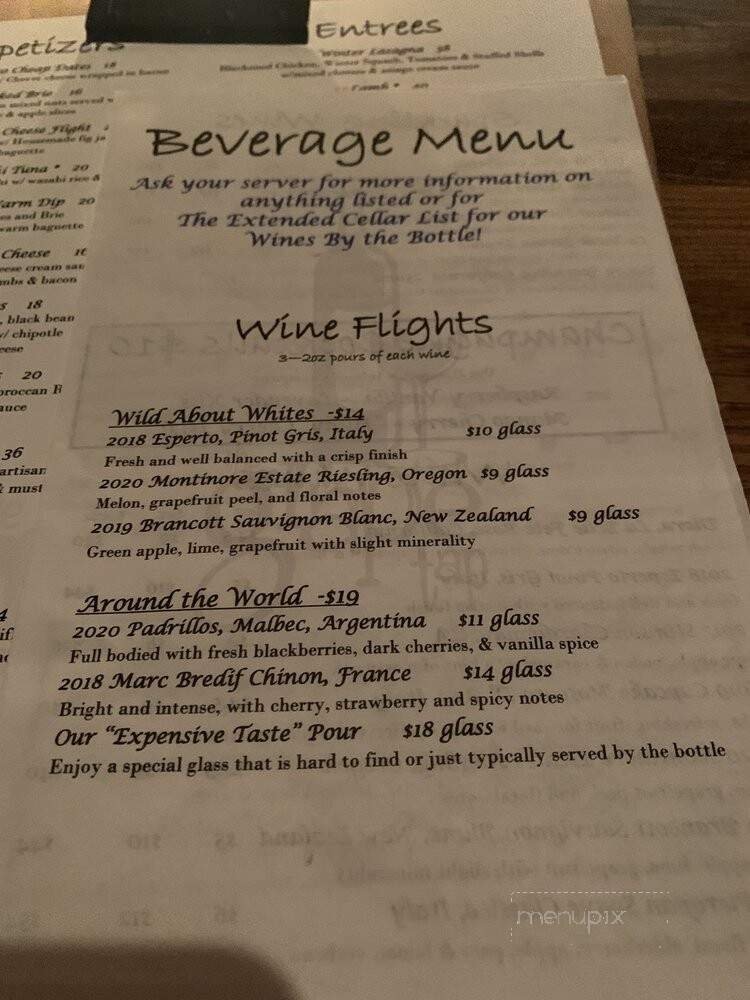 petizers
Entrees
Cheap Dates 18
Cheese wrapped in bacon
Winter Lasagna 38
Blackened Chicken, Winter Squash, Tomatoes & Stuffed Shells
Brie 16
mixed nuts served w
& apple slices
Lamb *
Cheese Flight
w/ Homemade fig ja
baguette
Tuna * 20
w/ wasabi rice &
arm Dip 20
es and Brie
warm baguette
Cheese
eese cream sau
mbs & bacon
18
, black bean
w/ chipotle
eese
20
oroccan
auce
36
artisan
& must
Beverage Menu
Ask your server for more information on
anything listed or for
The Extended Cellar List for our
Wines By the Bottle!
Wine Flights
3—2oz pours of each wine
Wild About Whites -$14
2018 Esperto, Pinot Gris, Italy $10 glass
Fresh and well balanced with a crisp finish
2020 Montinore Estate Riesling, Oregon $9 glass
Melon, grapefruit peel, and floral notes
2019 Brancott Sauvignon Blanc, New Zealand $9 glass
Green apple, lime, grapefruit with slight minerality
Around the World -$19
2020 Padrillos, Malbec, Argentina $11 glass
Full bodied with fresh blackberries, dark cherries, & vanilla spice
2018 Marc Bredif Chinon, France $14 glass
Bright and intense, with cherry, strawberry and spicy notes
Our “Expensive Taste” Pour $18 glass
Enjoy a special glass that is hard to find or just typically served by the bottle
menupix